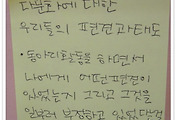 다문화에 대한
우리들의 편견과 태도
• 동아리활동을 하면서
나에게 어떤편견이
있었는지 그리고 그것을
일부러 부정하고 있었다는